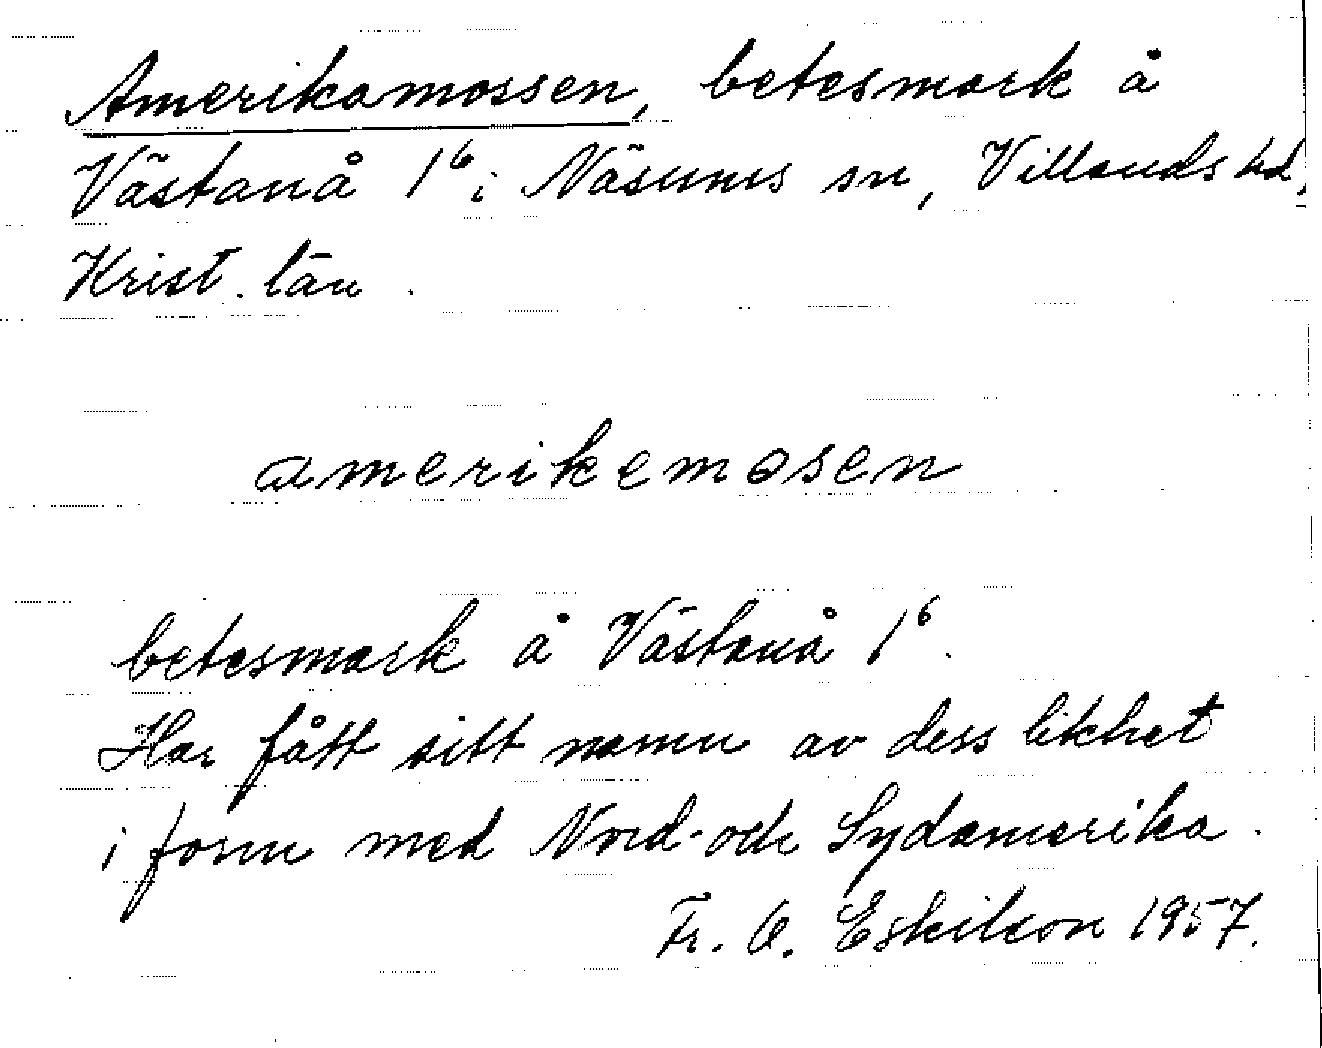 Amerikamossen, betesmark å
Västanå 1⁶ i Näsums sn, Villands hd,
Krist. län.
amerikemosen
betesmark å Västanå 1⁶.
Har fått sitt namn av dess likhet
i form med Nord- och Sydamerika.
Fr. O. Eskilson 1957.